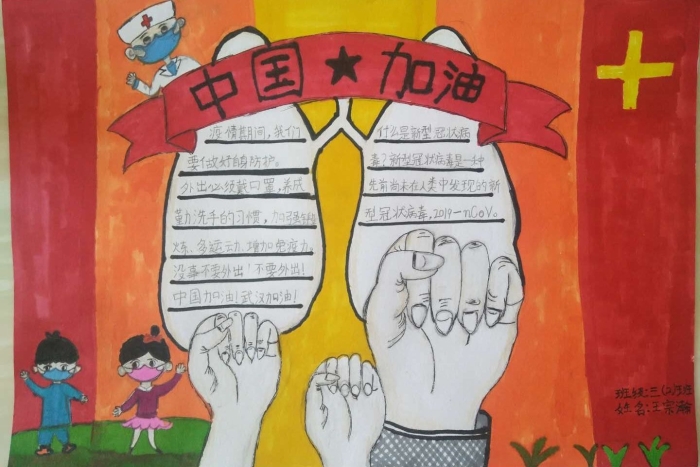 中国★加油
疫情期间，我们
要做好自身防护。
外出必须戴口罩，养成
勤洗手的习惯，加强锻
炼、多运动、增加免疫力。
没事不要外出！不要外出！
中国加油！武汉加油！
什么是新型冠状病
毒？新型冠状病毒是一种
先前尚未在人类中发现的新
型冠状病毒，2019-nCoV。
班级:三(2)班
姓名:王宗瀚